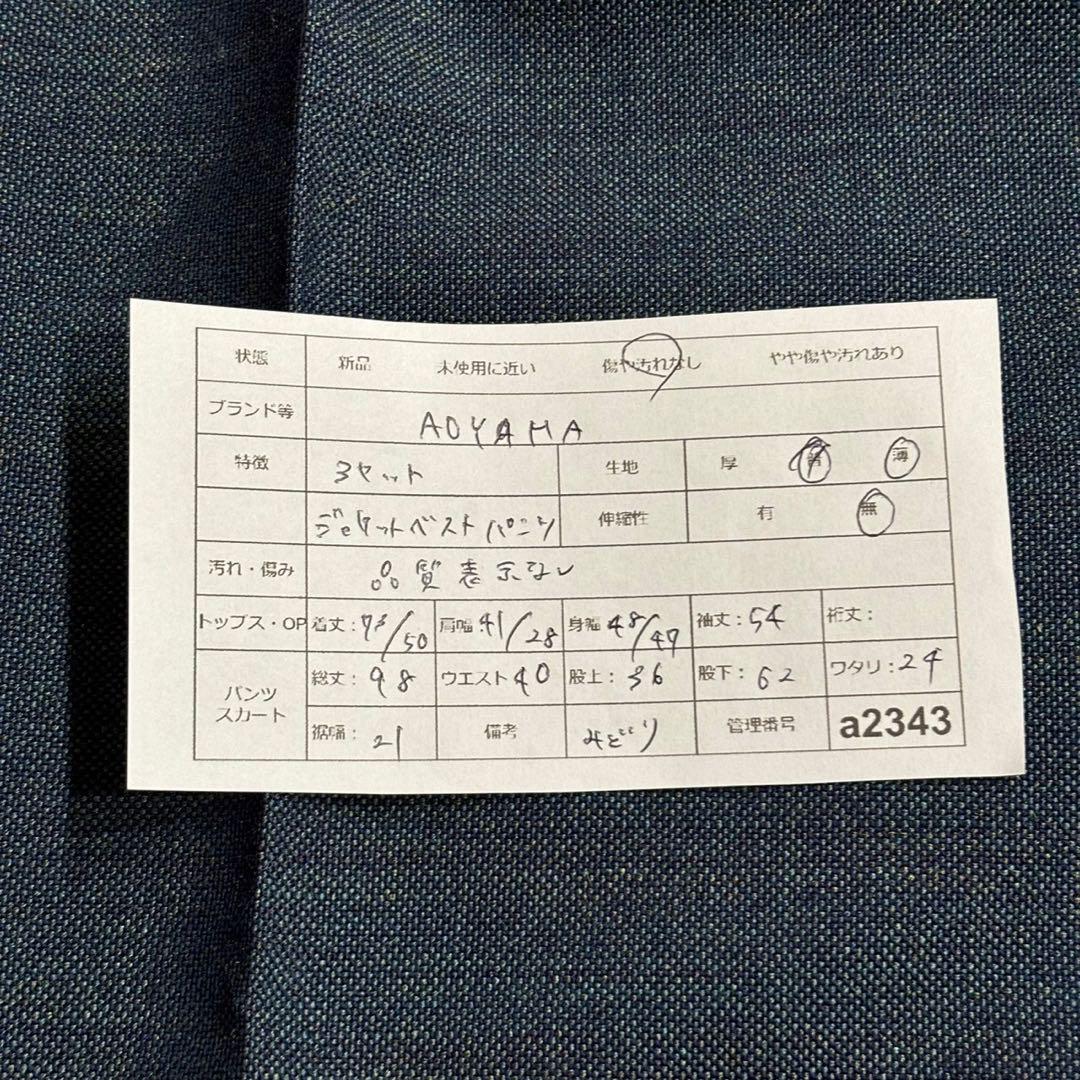 状態 新品 未使用に近い 傷や汚れなし やや傷や汚れあり
ブランド等 AOYAMA
特徴 3セット 生地 厚 普 薄
ジャケットベスト パンツ 伸縮性 有 無
汚れ・傷み 品質表示なし
トップス・OP 着丈：73/50 肩幅：41/28 身幅 48/47 袖丈：54 裄丈：
パンツ スカート 総丈：98 ウエスト 40 股上：36 股下：62 ワタリ：24
裾幅：21 備考 みどり 管理番号 a2343